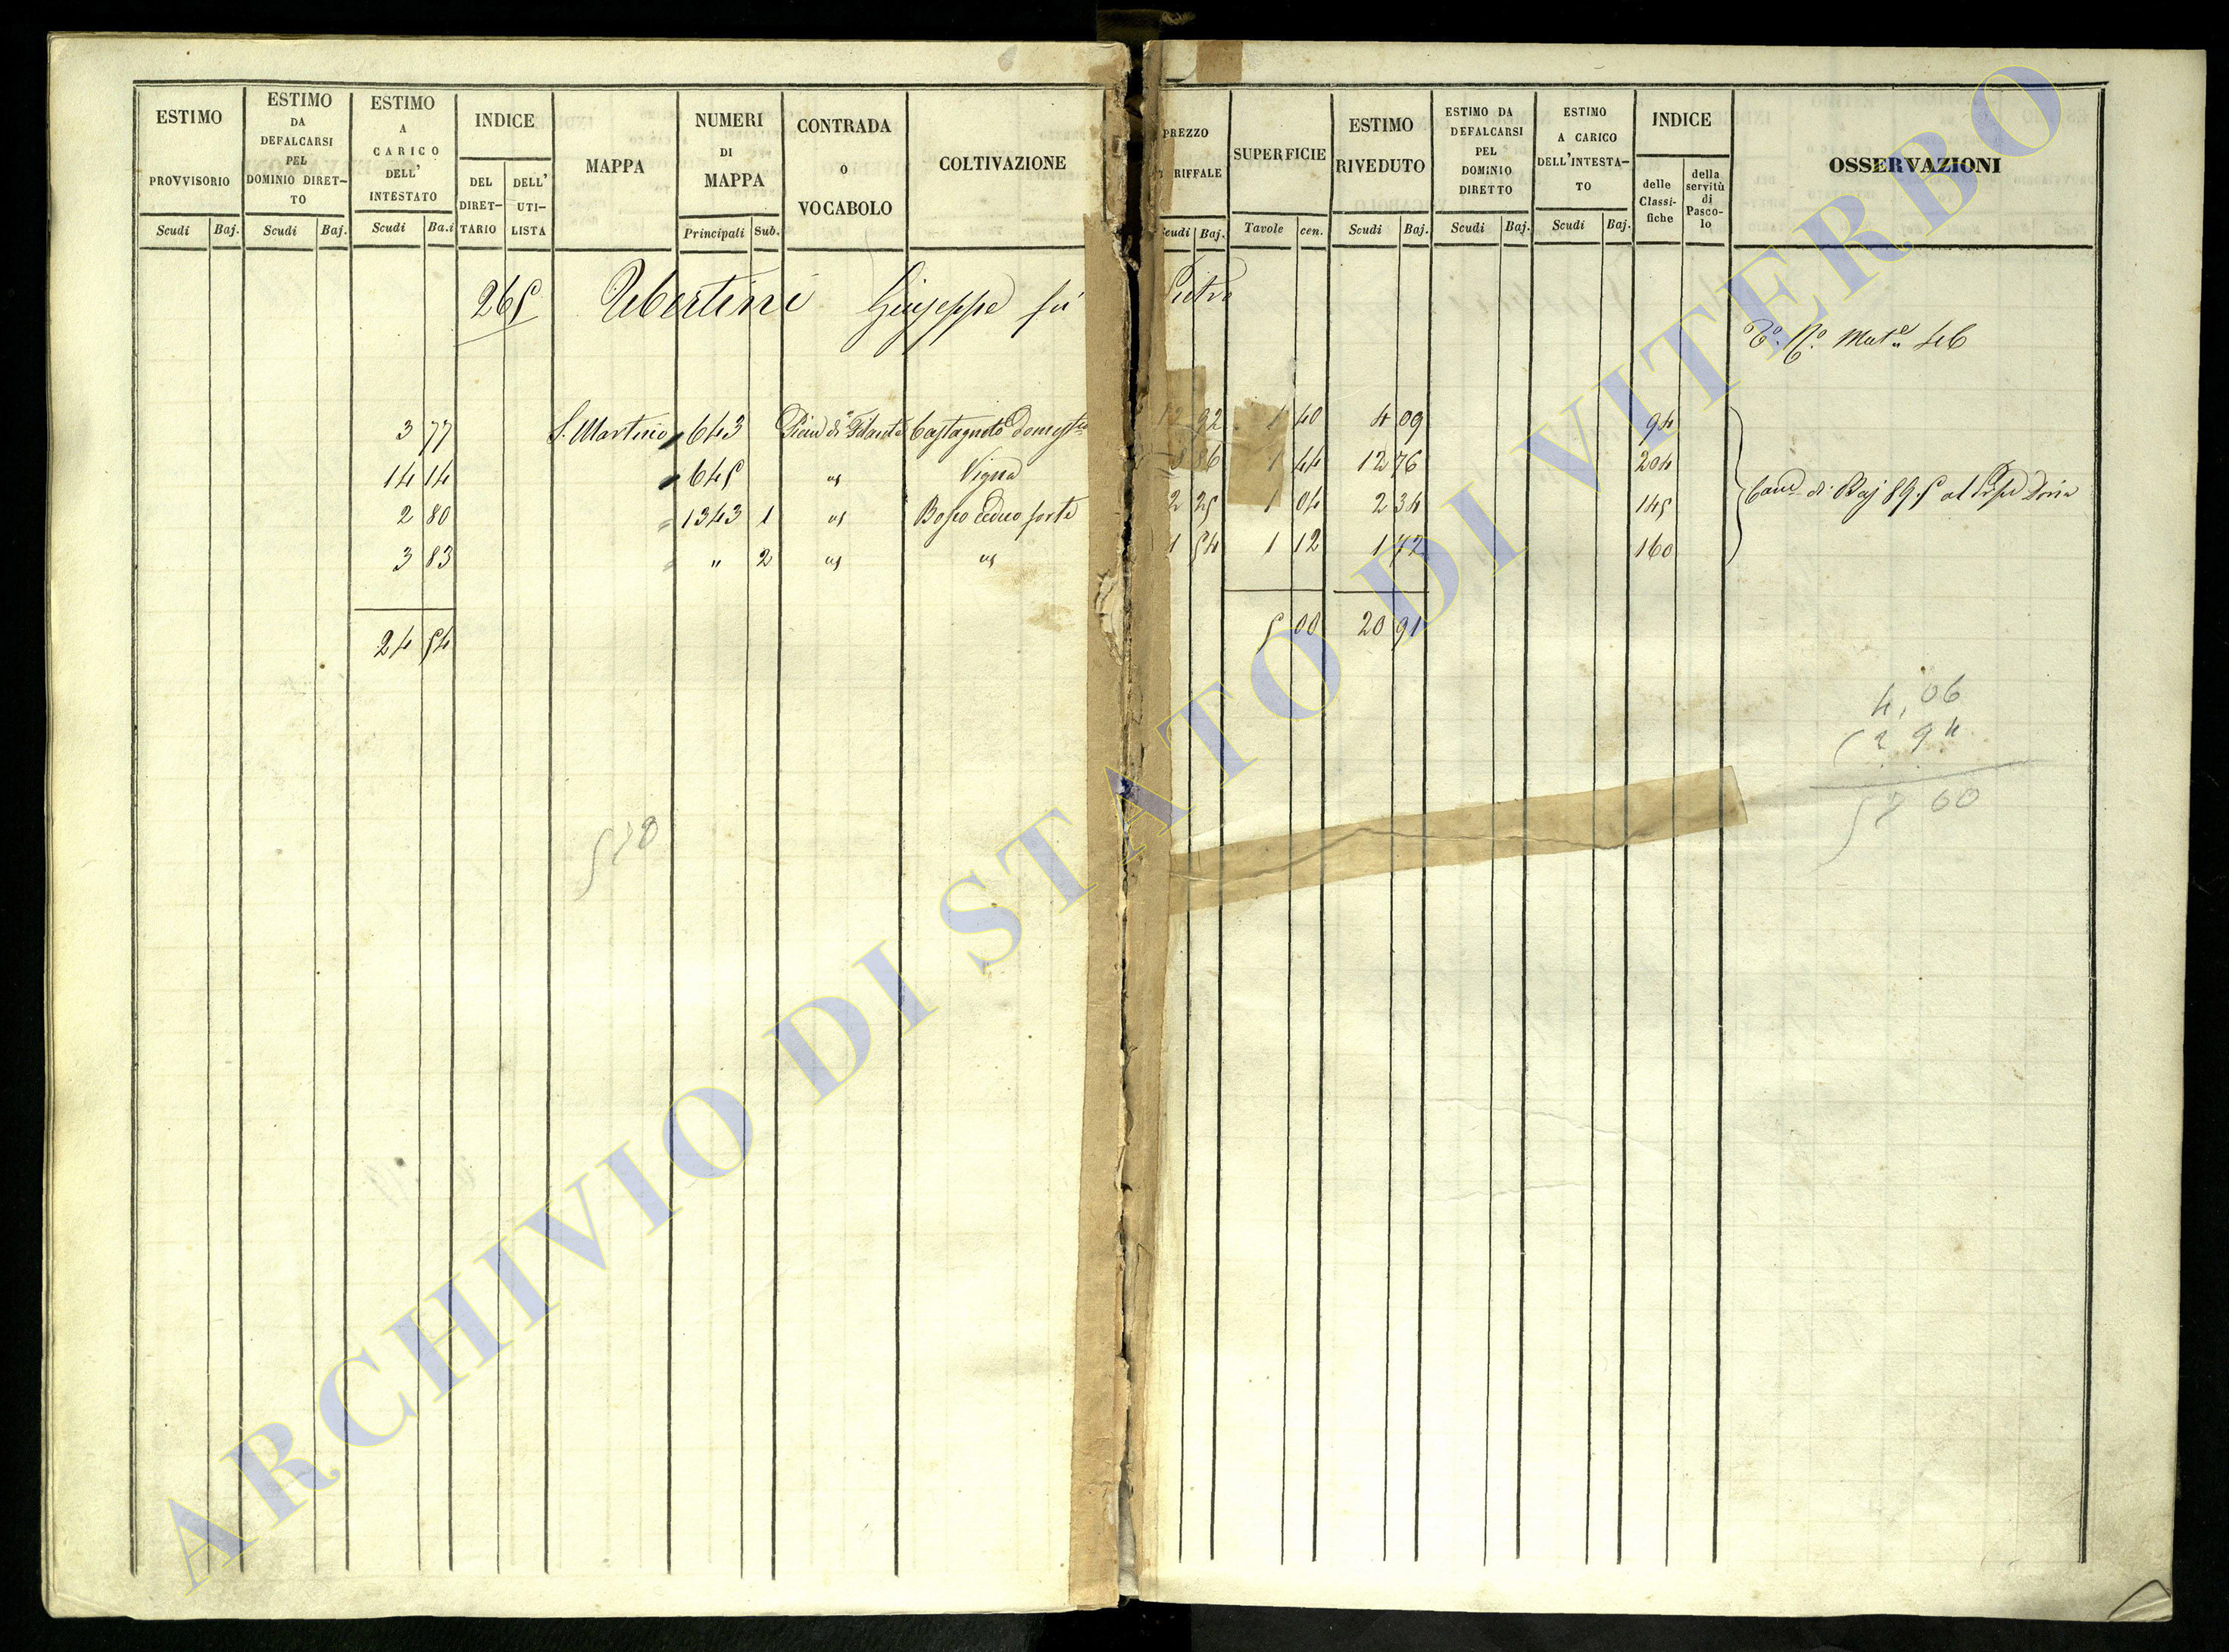 ESTIMO PROVVISORIO
Scudi Baj.
ESTIMO DA DEFALCARSI PEL DOMINIO DIRET-TO
Scudi Baj.
ESTIMO A CARICO DELL' INTESTATO
Scudi Ba.i
INDICE
DEL DIRET-TARIO
DELL' UTI-LISTA
MAPPA
NUMERI DI MAPPA
Principali Sub.
CONTRADA o VOCABOLO
COLTIVAZIONE
PREZZO RIFFALE
cudi Baj.
SUPERFICIE
Tavole cen.
ESTIMO RIVEDUTO
Scudi Baj.
ESTIMO DA DEFALCARSI PEL DOMINIO DIRETTO
Scudi Baj.
ESTIMO A CARICO DELL'INTESTA-TO
Scudi Baj.
INDICE
delle Classi-fiche
della servitù di Pasco-lo
OSSERVAZIONI
265 Ubertini Giuseppe fu Pietro
3 77 S. Martino 643 Castagneto Domestico 92 1 40 4 09 94
14 14 " 645 " Vigna 86 1 44 12 76 204
2 80 " 1343 1 " Bosco ceduo forte 2 25 1 04 2 34 145
3 83 " " 2 " " 1 54 1 12 1 72 160
di Baj 89.5 al Doria
24 54 5 00 20 91
4,06
2 94
60
ARCHIVIO DI STATO DI VITERBO